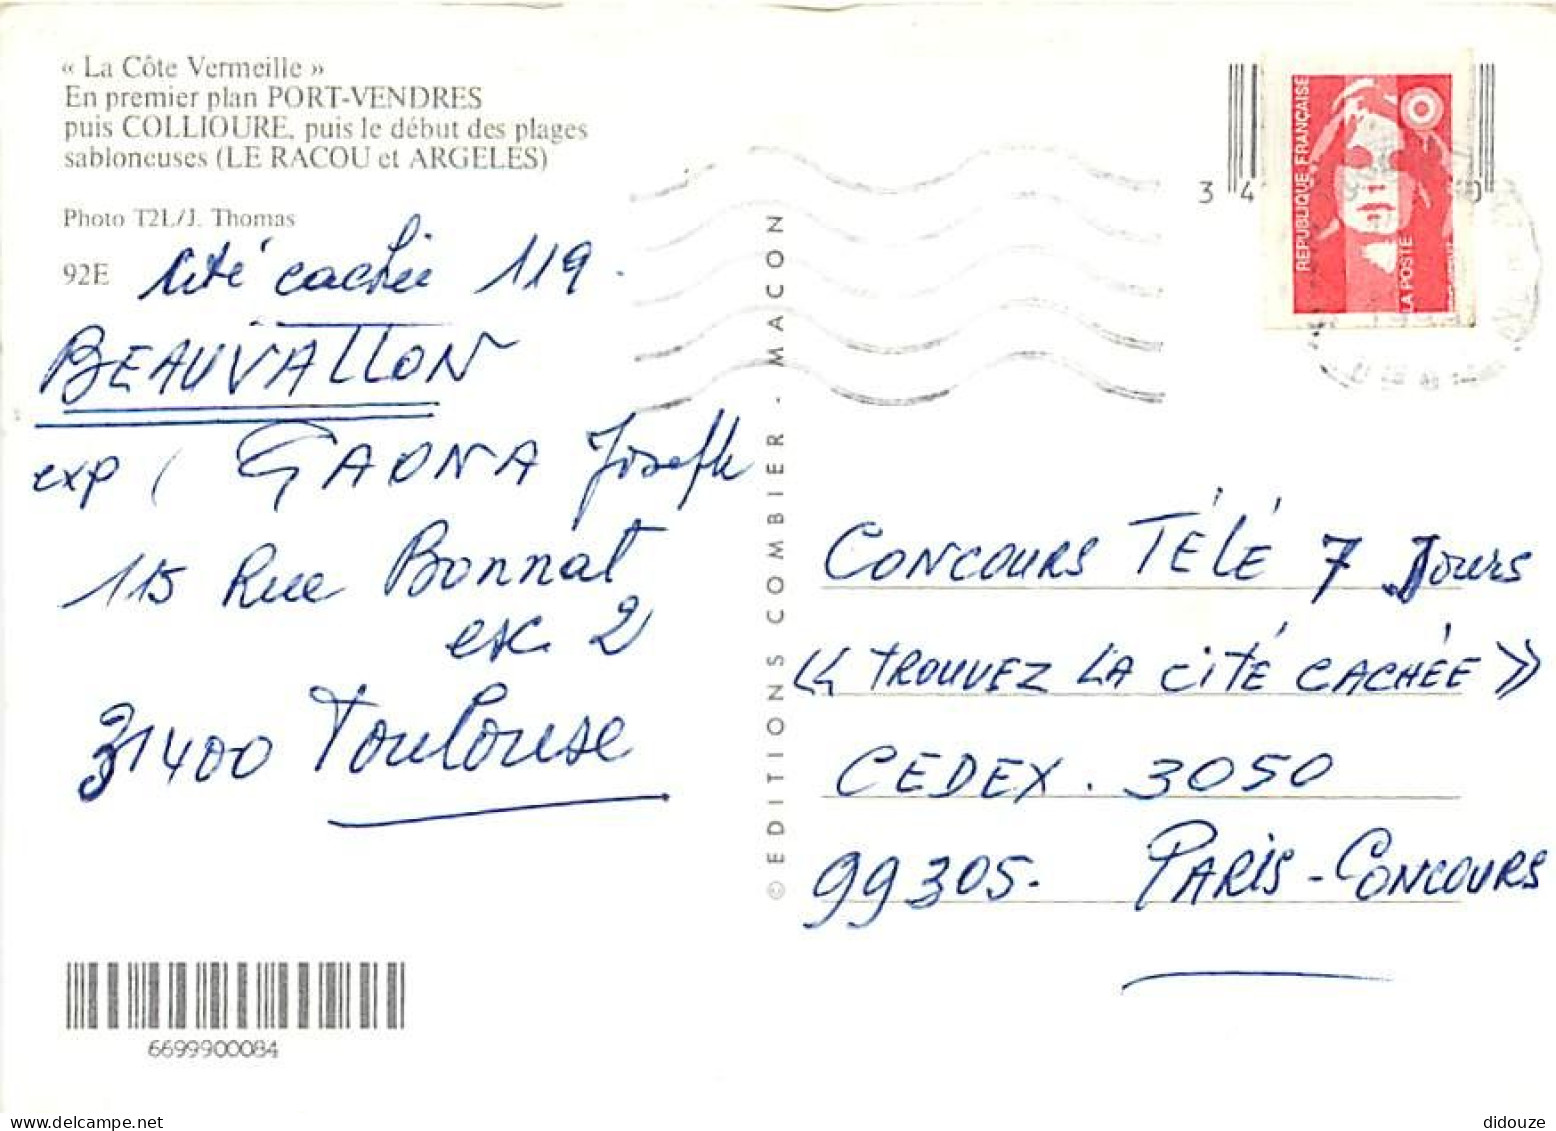 « La Côte Vermeille »
En premier plan PORT-VENDRES
puis COLLIOURE, puis le début des plages
sabloneuses (LE RACOU et ARGELES)
Photo T2L/J. Thomas
92E
Cité cachée 119.
BEAUVALLON
exp ( GAONA Joseph
115 Rue Bonnat
esc 2
31400 Toulouse
6699900084
© EDITIONS COMBIER - MACON
3 4 0
REPUBLIQUE FRANÇAISE
LA POSTE
CONCOURS TÉLÉ 7 Jours
« TROUVEZ LA CITÉ CACHÉE »
CEDEX. 3050
99305. PARIS-CONCOURS
didouze